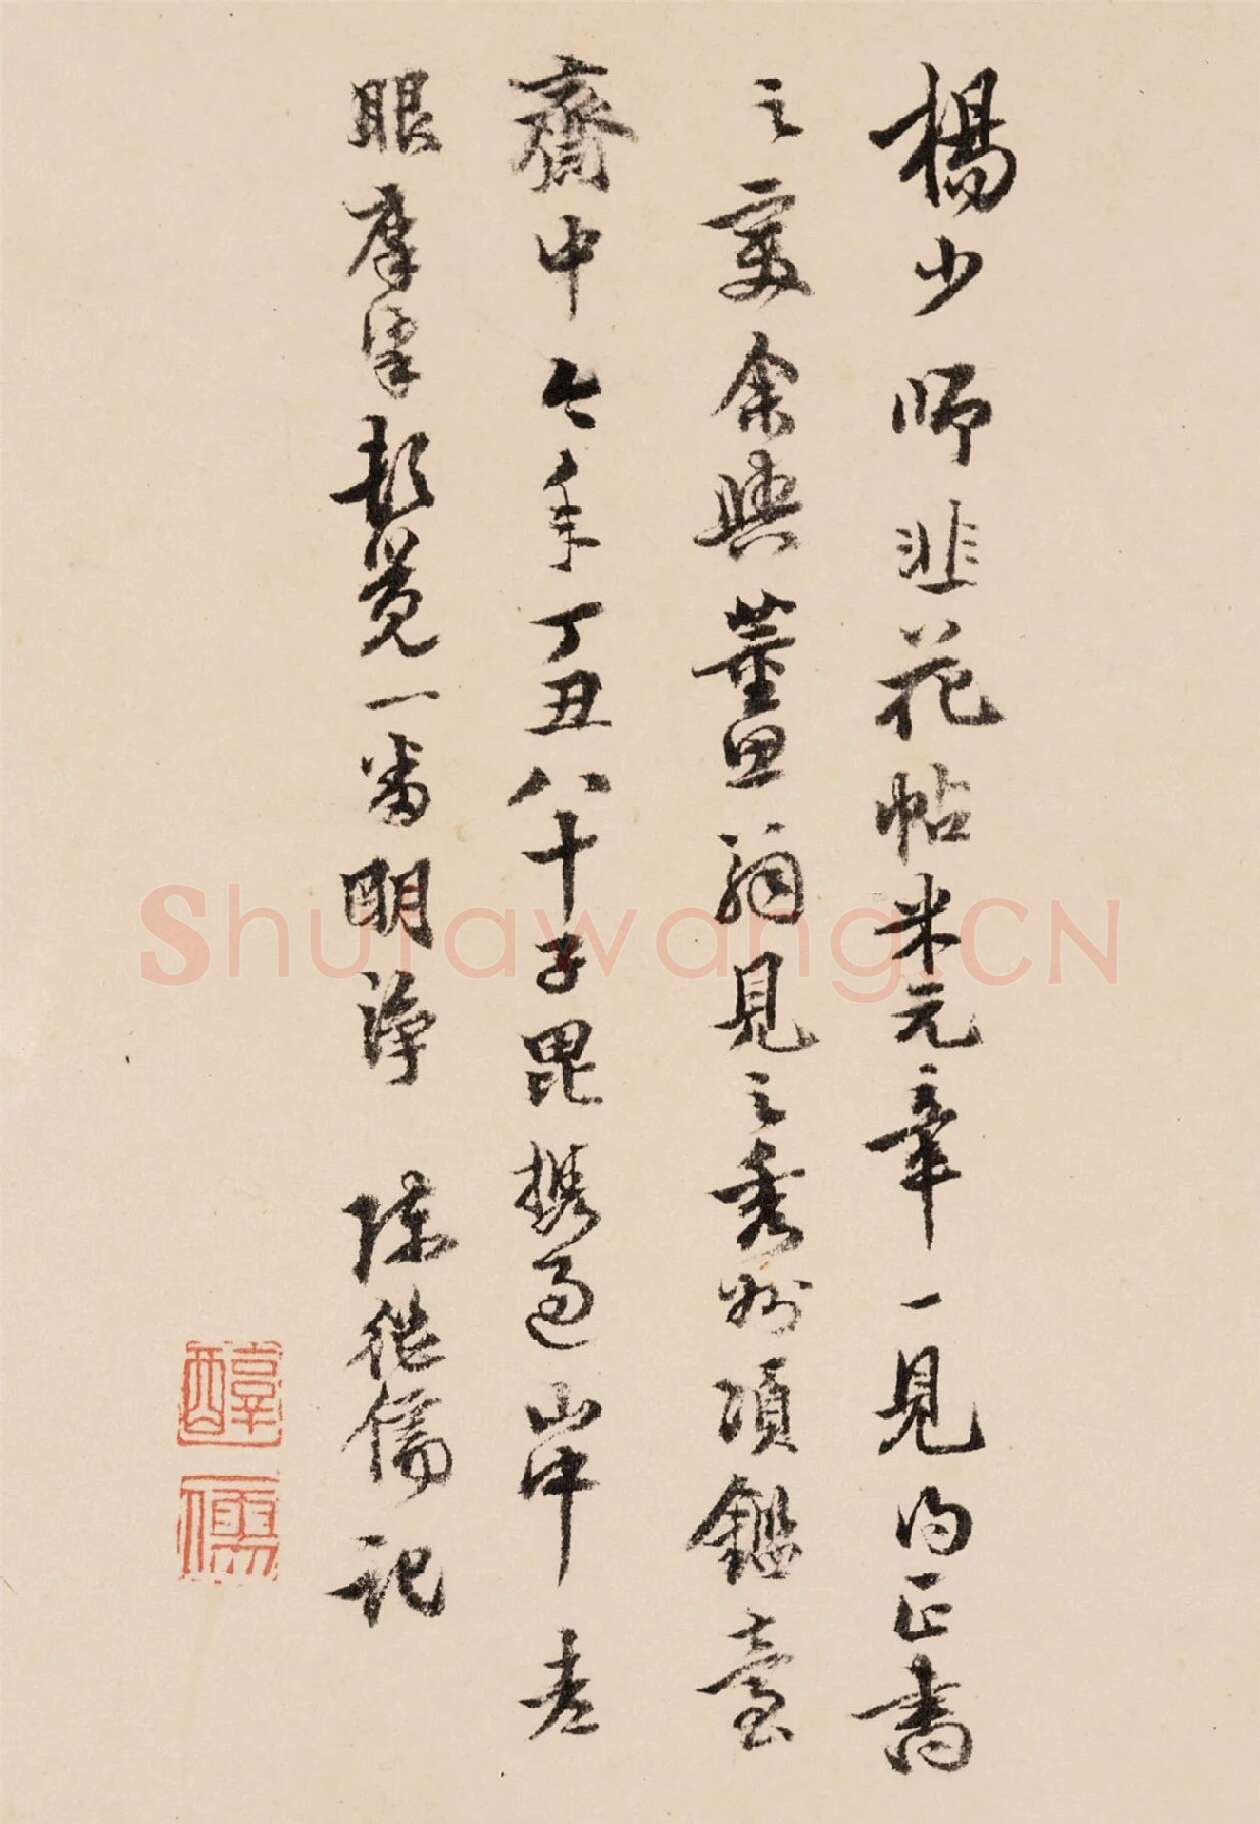 楊少師韭花帖米元章一見为正書
之變余與董思翁見之秀州項鑑臺
齋中今年丁丑八十子毘攜過山中老
眼摩挲頓覺一番明淨 陳継儒記
醇
儒
Shufawang.CN